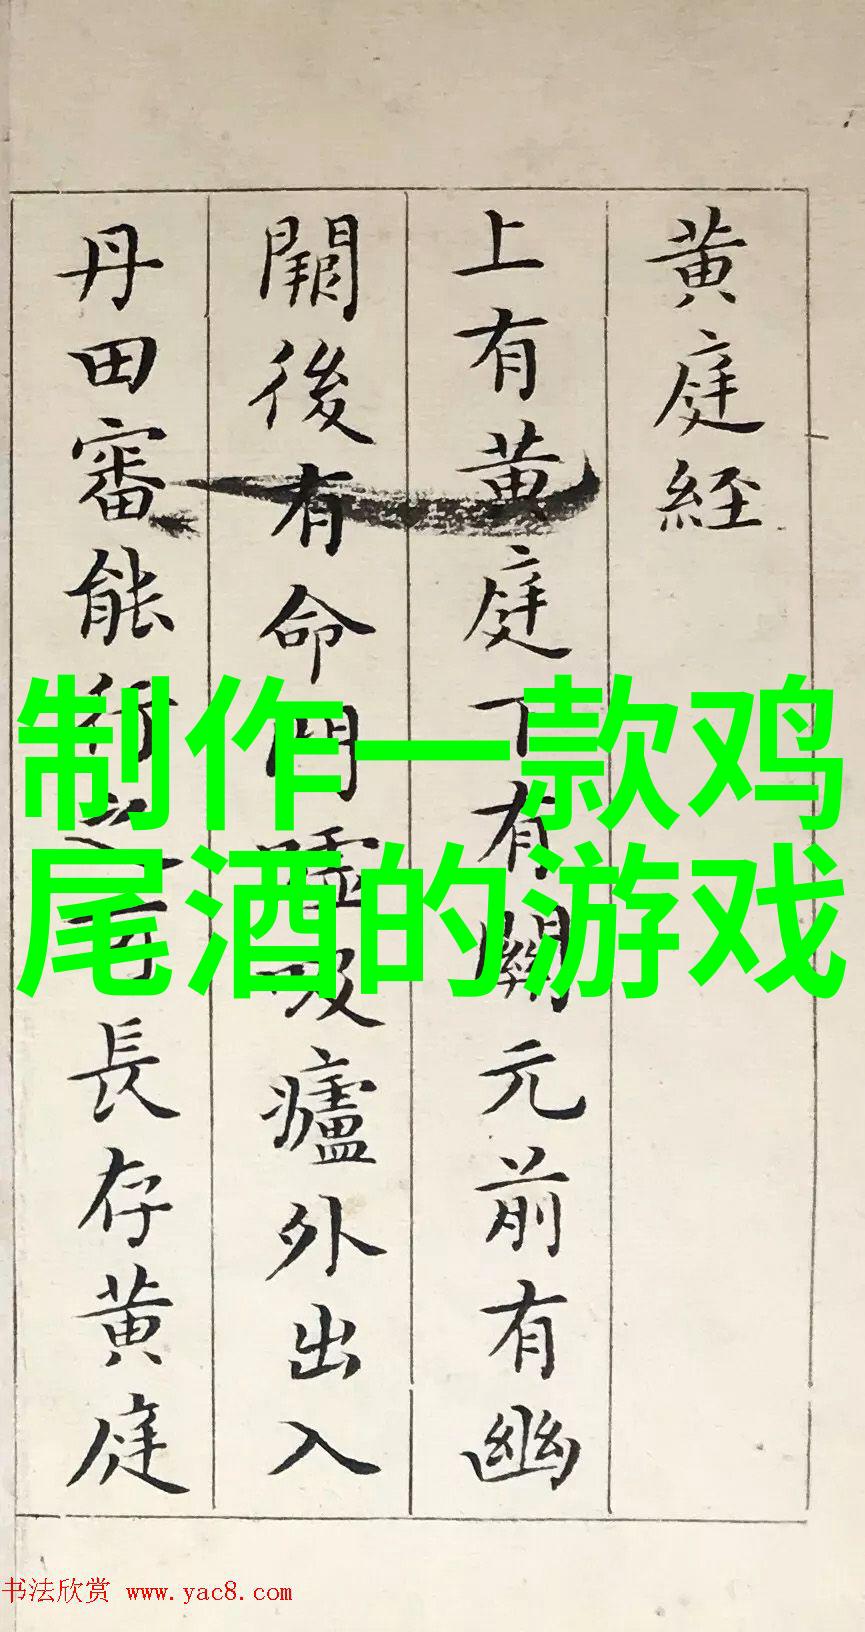 黄庭経
上有黄庭下有關元前有幽
闕後有命門嘘吸廬外出入
丹田審能行之可長存黄庭
制作一款鸡
尾酒的游戏
书法欣赏 www.yac8.com